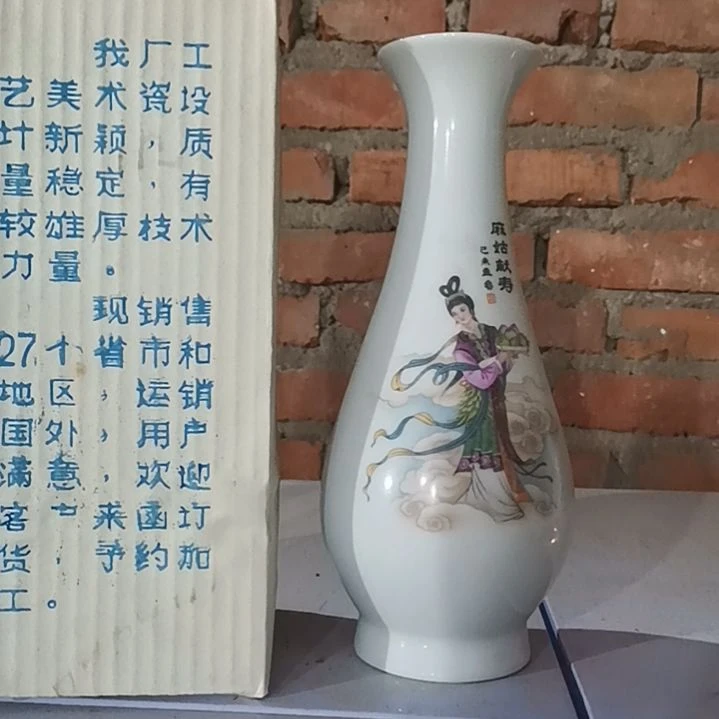 我厂工
艺美术瓷,设
计新颖,质
量稳定,有
较雄厚技术
力量。
现销售
27个省市和
地区,运销
国外,用户
满意,欢迎
客来函订
货,予约加
工。
麻姑献寿
己未孟春